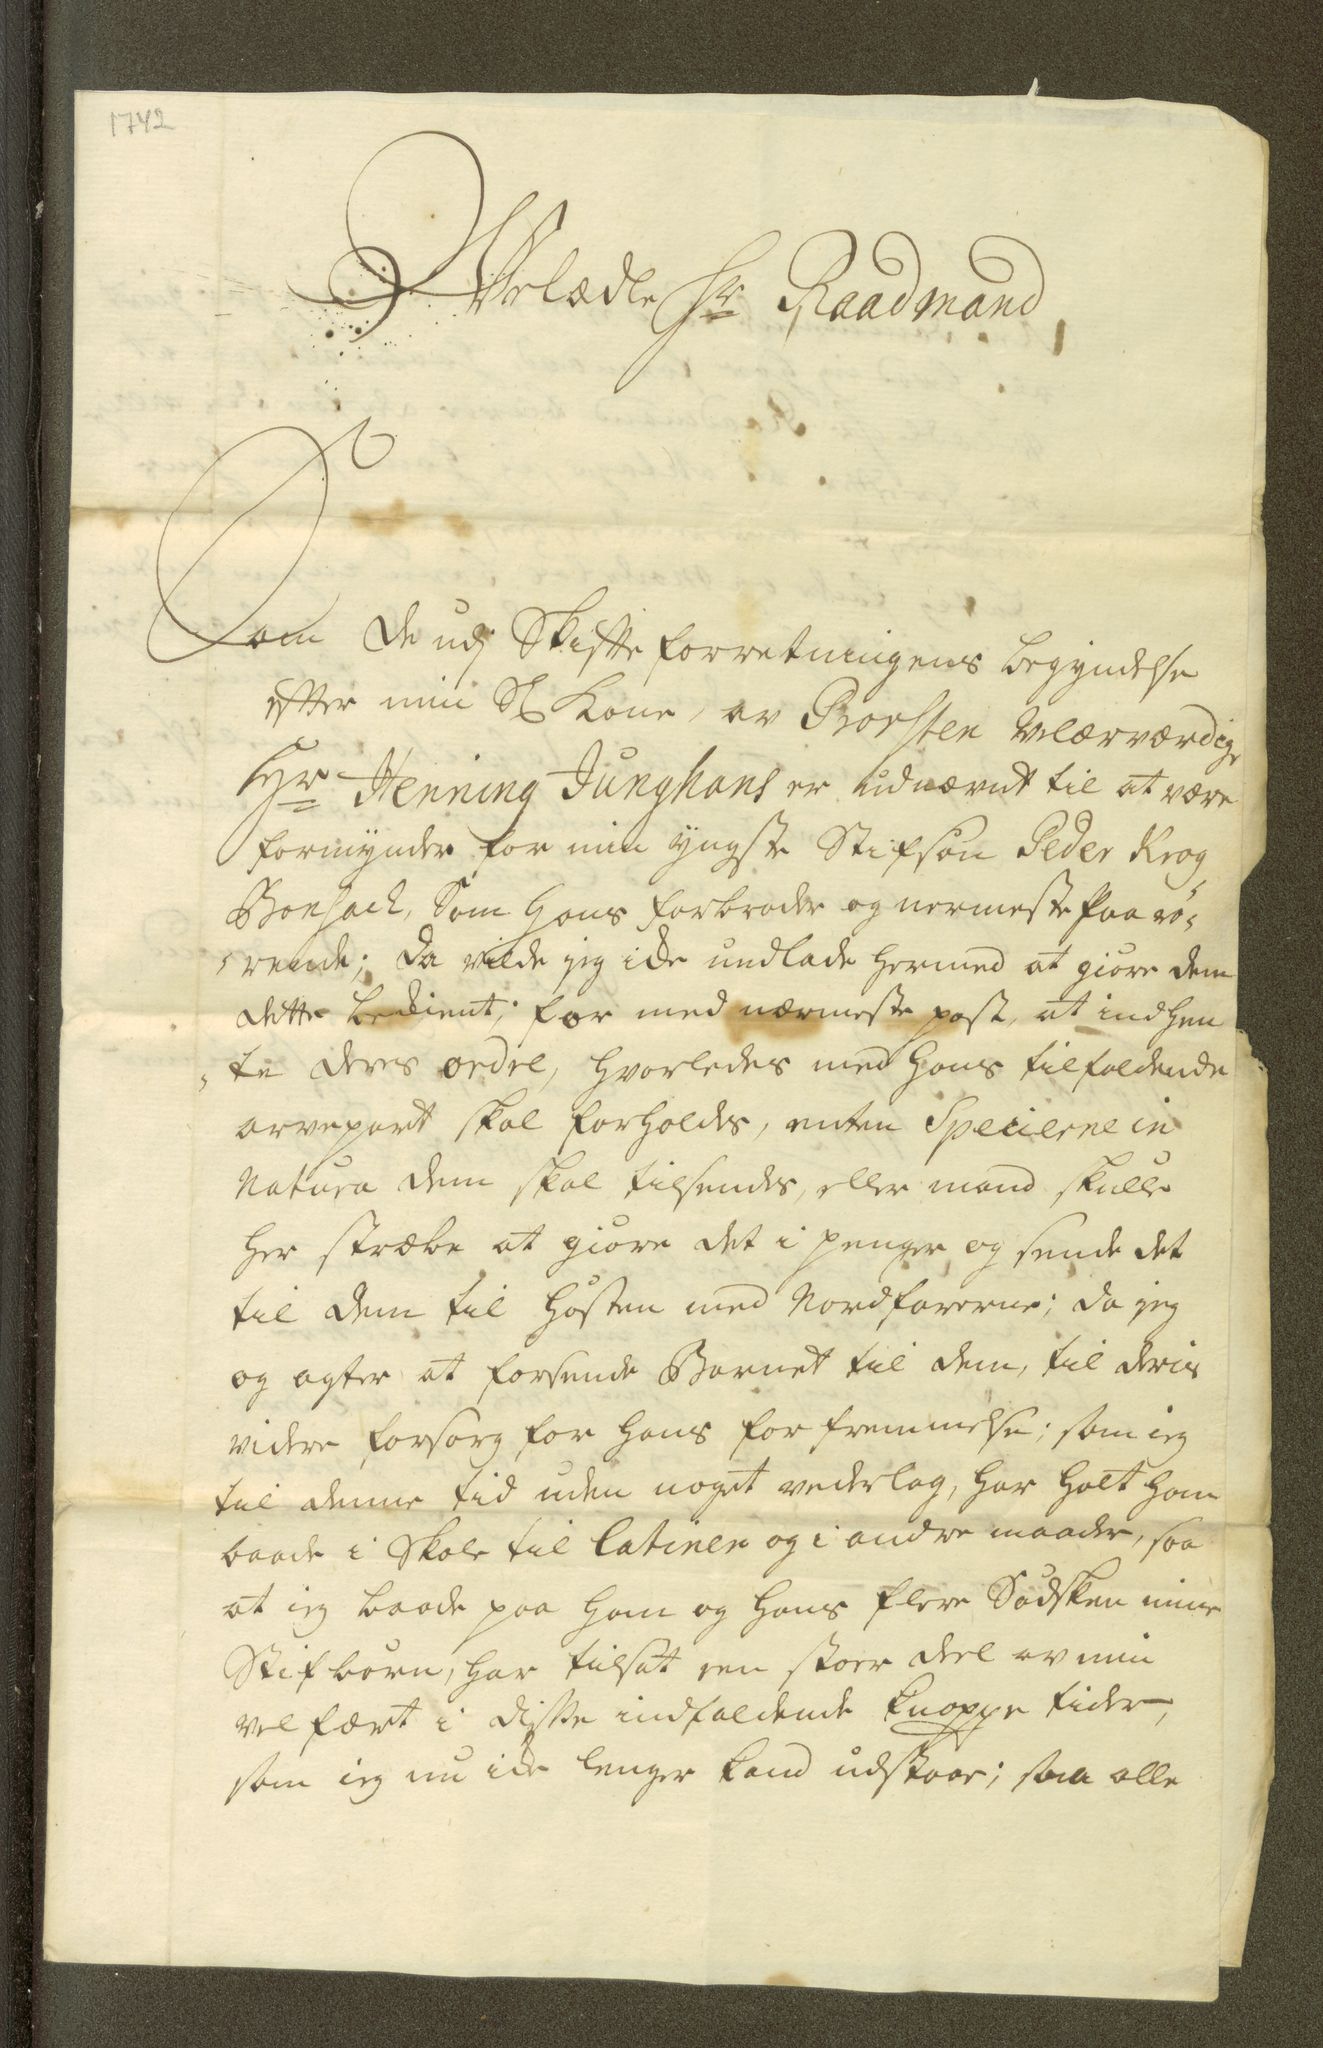 1742
Velædle Hr Raadmand
Som De udj Skifte forretningens begyndelse
efter min Sl Kone, av Provsten Velærværdige
Hr Henning Junghans er udnævnt til at være
formynder for min yngste Stifsøn Peder Krog
Bonsach, Som Hans farbroder og nermeste Paarö-
rende; Da vilde jeg icke undlade hermed at giøre dem
dette bedient; for med nærmeste post, at indhen
te deres ordre, hvorledes med Hans tilfaldende
arvepart skal forholdes, enten Specierne in
Natura dem skal tilsendes, eller mand skulle
her stræbe at giøre det i penger og sende det
til dem til Høsten med Nordfarerne; da jeg
og agter at forsende Barnet til dem, til deris
videre forsorg for Hans forfremmelse; som ieg
til denne tid uden noget vederlag, har holt ham
baade i Skole til latinen og i andre maader, saa
at ieg baade paa Ham og Hans flere Sødsken mine
Stifbørn, har tilsat een stoer deel av min
velfært i disse indfaldende knappe tider,
som ieg nu icke lenger kand udstaae; saa alle